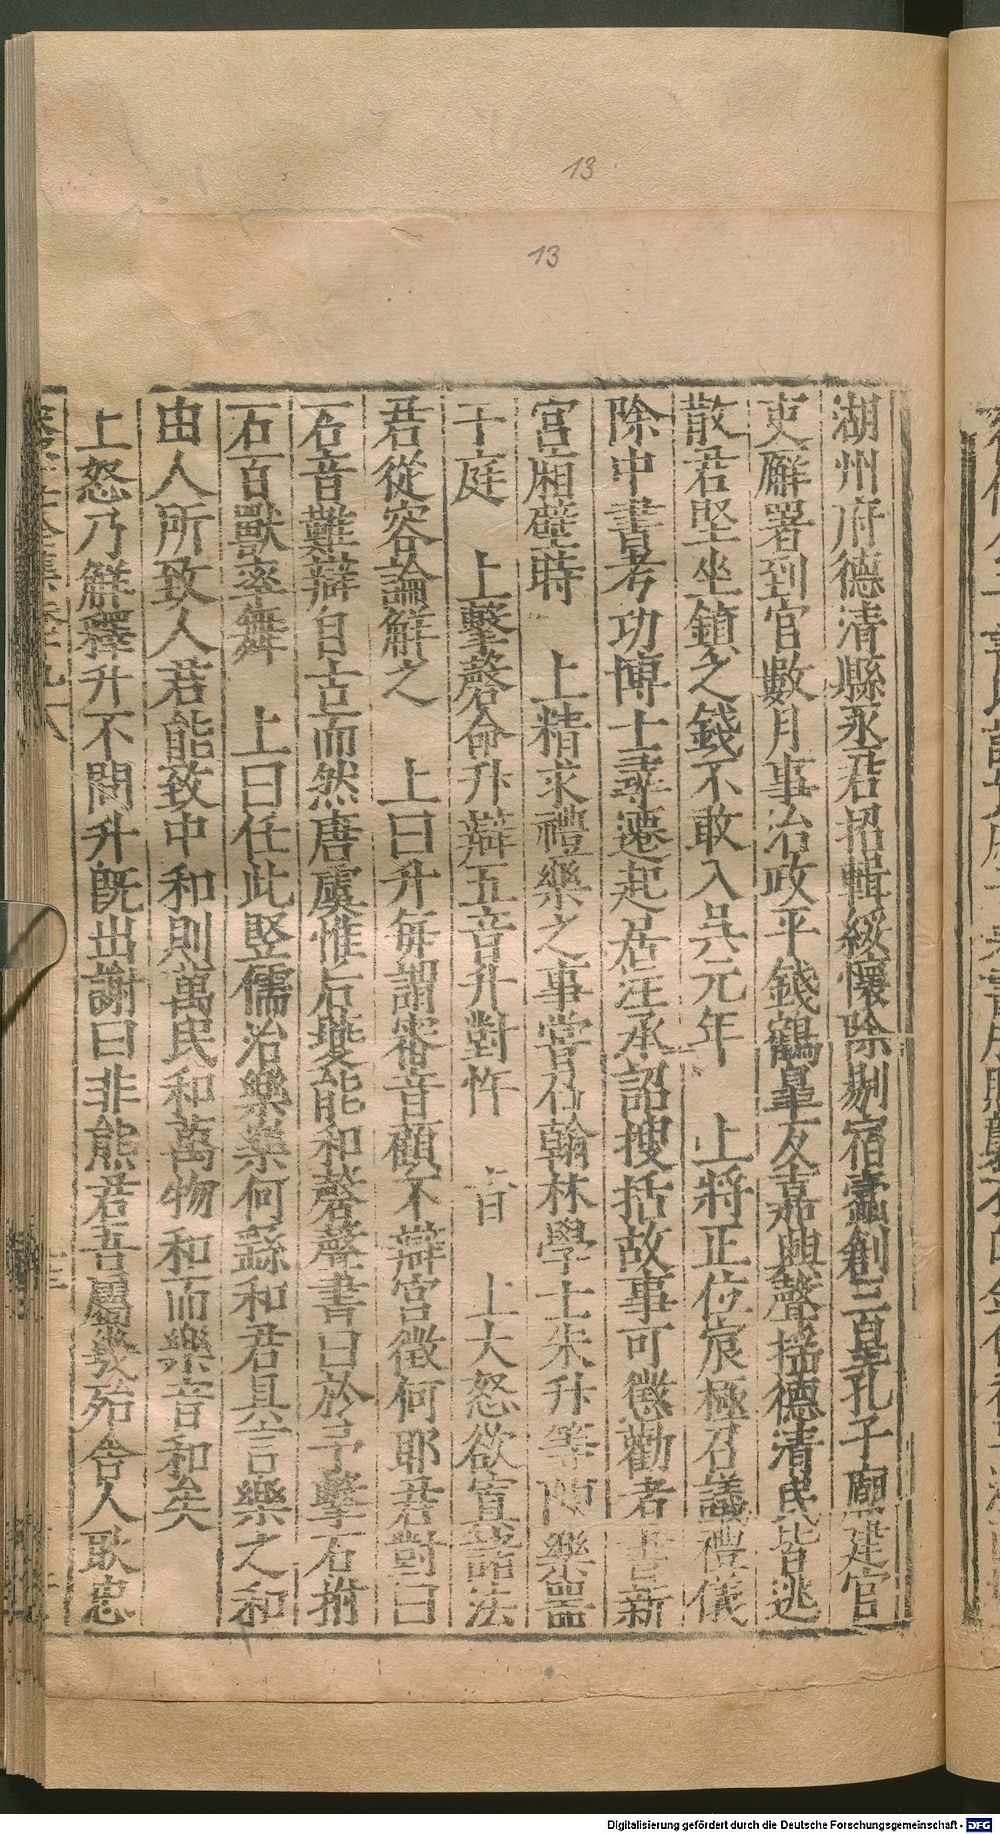 13
13
湖州府德清縣丞君招輯綏懷除剔宿蠹創三皇孔子廟建官
吏廨署到官數月事治政平錢鶴皐友嘉興聲搖德清民皆逃
散君堅坐鎮之錢不敢入吳元年 上將正位宸極召議禮儀
除中書考功博士尋遷起居注承詔搜括故事可懲勸者書新
宮廂壁時 上精求禮樂之事嘗召翰林學士朱升等陳樂噐
于庭 上擊磬命升辯五音升對忤 上旨 上大怒欲寘諸法
君從容論解之 上曰升每謂審音顧不辯宮徵何耶君對曰
石音難辯自古而然唐虞惟后夔能和磬聲書曰於予擊石拊
石百獸率舞 上曰任此竪儒治樂樂何繇和君具言樂之和
由人所致人君能致中和則萬民和萬物和而樂音和矣
上怒乃解釋升不問升既出謝曰非熊君吾屬幾殆舍人耿忠
Digitalisierung gefördert durch die Deutsche Forschungsgemeinschaft - DFG